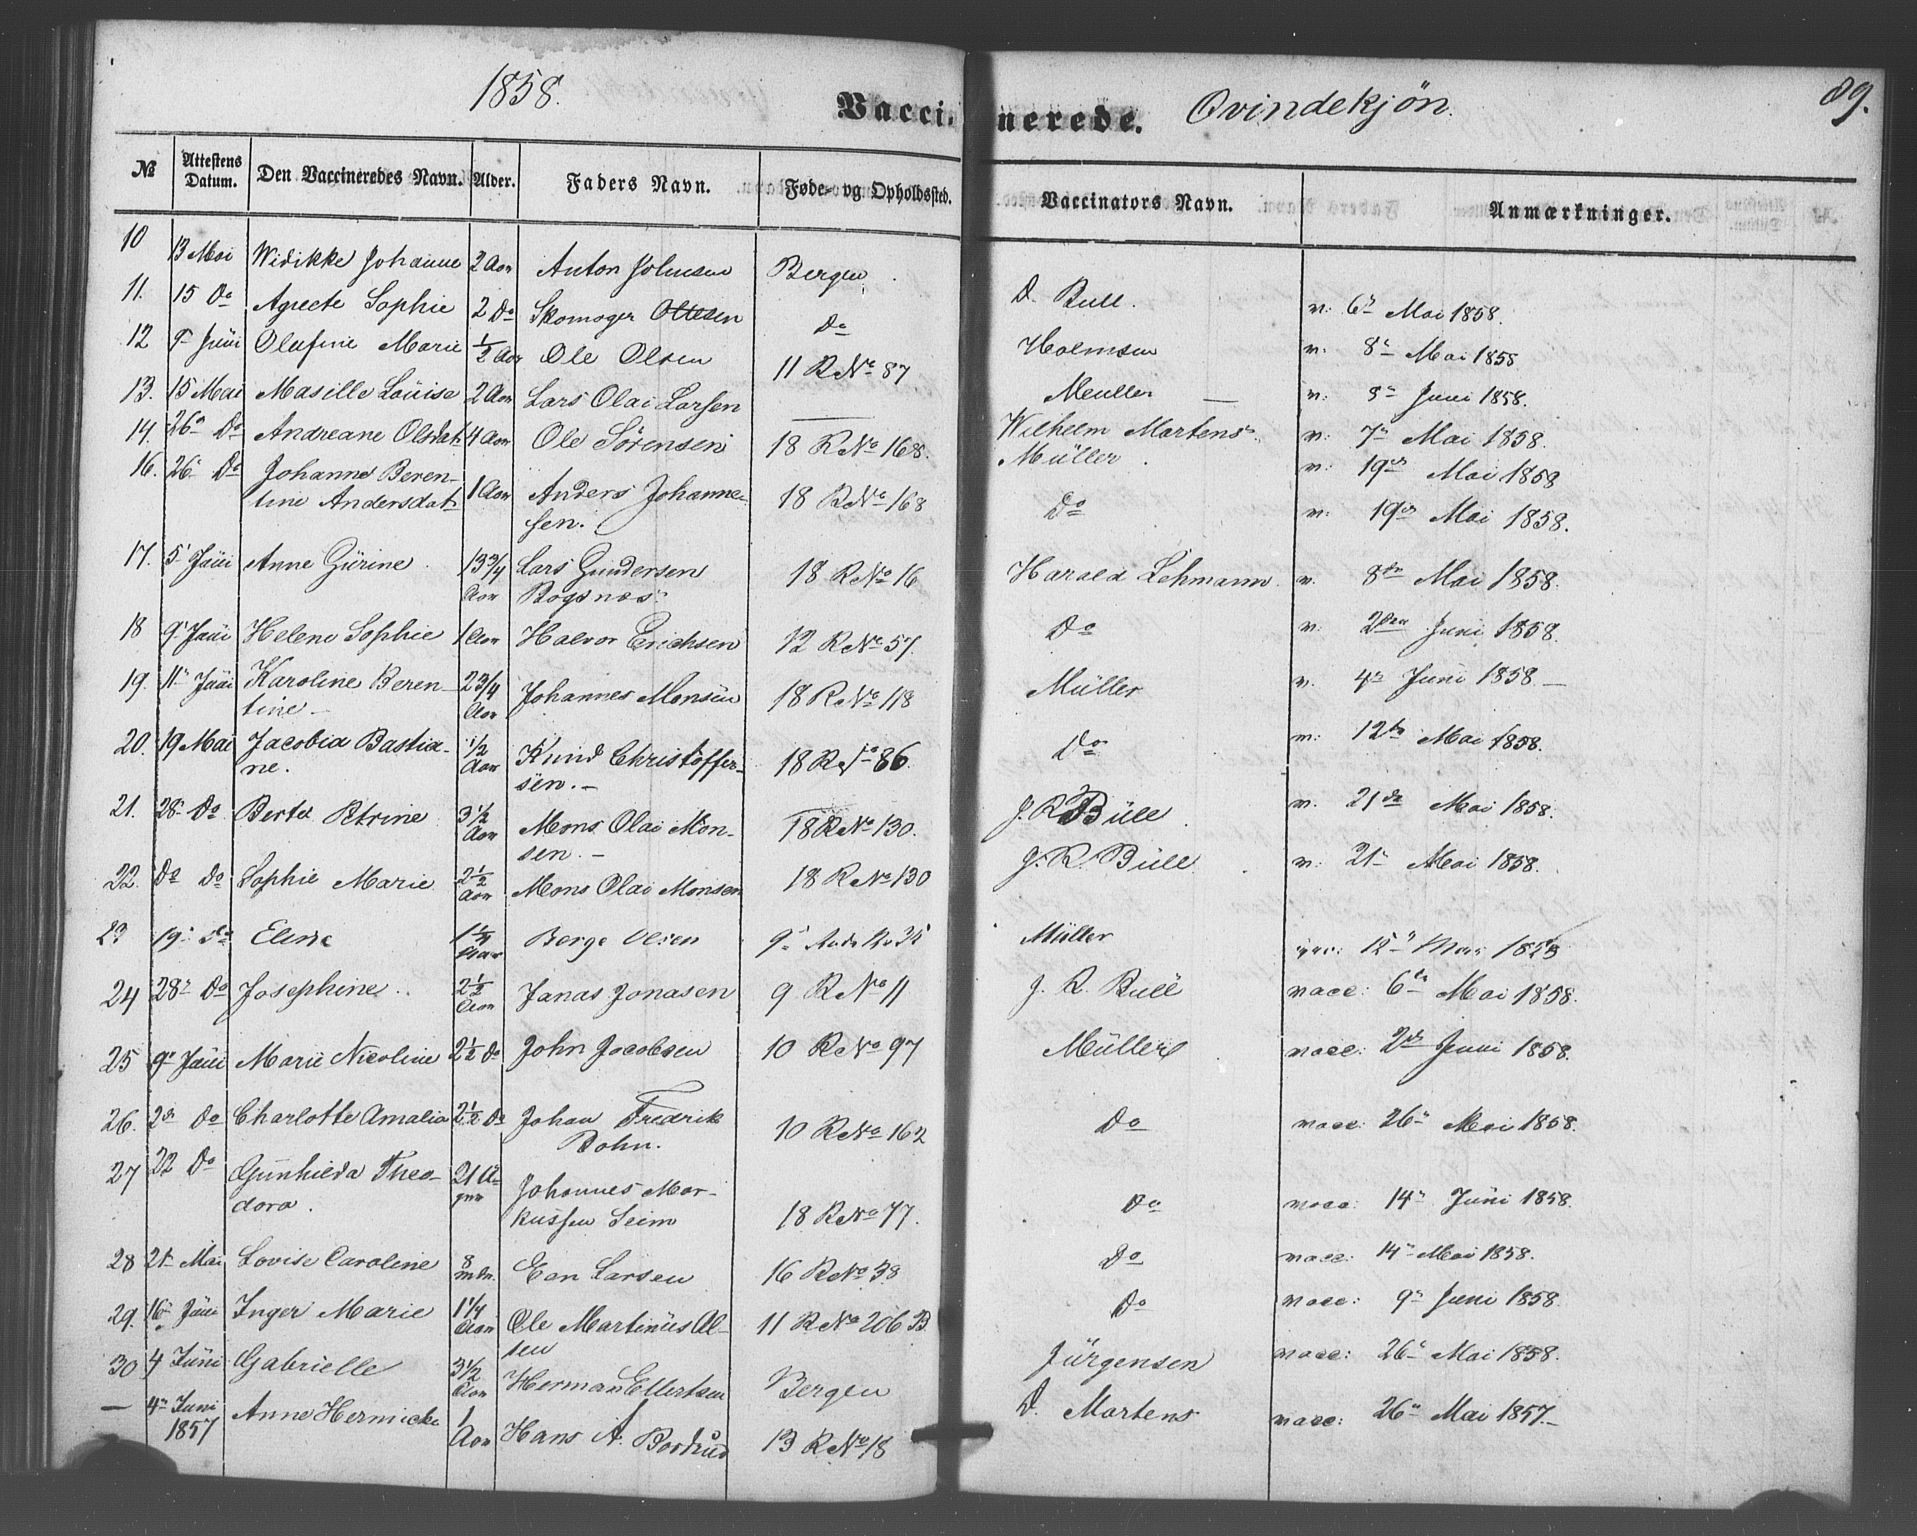 1858.
Vaccinerede. Qvindekjøn.
89.
№ Attestens Datum. Den Vaccineredes Navn. Alder. Faders Navn. Føde- og Opholdssted. Vaccinators Navn. Anmærkninger.
10 13 Mai Widikke Johanne 2 Aar Anton Johnsen Bergen. D. Bull. v: 6te Mai 1858.
11. 15 Do Agnete Sophie 2 Do Skomager Ottesen Do Holmsen v: 8de Mai 1858
12 9de Juni Olufine Marie ½ Aar Ole Olsen 11 R No 87 Meuller v: 8de Juni 1858.
13. 15 Mai Masille Louise 2 Aar Lars Olai Larsen — Wilhelm Martens v: 7de Mai 1858.
14. 26de Do Andreane Olsdat 4 Aar Ole Sørensen 18 R No 168. Müller v: 19de Mai 1858
16. 26de Do Johanne Beren-
tine Andersdat 1 Aar Anders Johanne-
sen. 18 R No 168 Do v: 19de Mai 1858.
17. 5 Juni Anne Gurine 13 ¾ Aar Lars Gundersen
Rogsnæs 18 R No 16 Harald Lehmann v. 8de Mai 1858.
18 9de Juni Helene Sophie 1 Aar Halvor Erichsen 12 R No 57. Do v. 2den Juni 1858.
19. 11te Juni Karoline Beren-
tine 2 ¾ Aar Johannes Monsen 18 R No 118 Müller v. 4de Juni 1858
20. 19 Mai Jacobia Bastia-
ne. ½ Aar Knud Christoffer-
sen. 18 R No 86 Do v: 12te Mai 1858.
21. 28. Do Berta Petrine 3 ½ Aar Mons Olai Mon-
sen. 18 R No 130. J. R. Bull v. 21de Mai 1858.
22. Do Do Sophie Marie 2 ½ Aar Mons Olai Monsen 18 R No 130 J. R. Bull v. 21 Mai 1858.
23 19 Do Elise 1 ¼ Aar Berge Olsen 9 R No 35 Müller vac: 12 Mai 1858
24 28de Do Josephine 2 ½ Aar Janas Jonasen 9 R No 11 J. R. Bull vacc: 6te Mai 1858.
25 9de Juni Marie Nicoline 2 ½ Do John Jacobsen 10 R No 97 Müller vacc: 2de Juni 1858.
26. 2de Do Charlotte Amalia 2 ½ Do Johan Fredrik
Bohn. 10 R No 162 Do vacc: 26 Mai 1858.
27 22 Do Gunhilda Theo-
dora. 21 Uger Johannes Mar-
kussen Seim 18 R No 77. Do vacc: 14 Juni 1858.
28 21 Mai Lovise Caroline 8 Mdr. Een Larsen 16 R No 38 Do vacc: 14 Mai 1858.
29. 16de Juni Inger Marie 1 ¼ Aar Ole Martinus Ol-
sen 11 R No 206 B Do vacc: 9de Juni 1858.
30 4 Juni Gabrielle 3 ½ Aar Herman Ellertsen Bergen Jürgensen vacc: 26 Mai 1858.
— 4de Juni
1857 Anne Hermicke 1 Aar Hans A. 13 R No 18 D. Martens vacc: 26 Mai 1857.